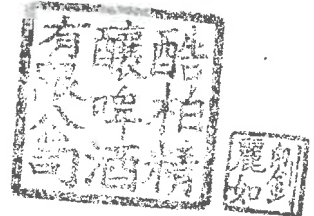 酷柏精
釀啤酒
有限公司
劉
麗如